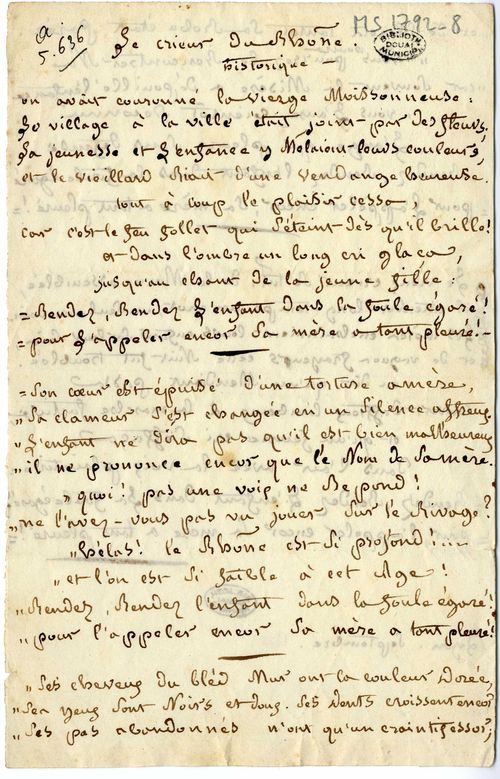 a
5.636
MS 1792-8
BIBLIOTH
DOUAI
MUNICIP
Le crieur du Rhône.
historique —
on avait couronné la vierge Moissonneuse :
Le village à la ville était joint par des fleurs.
La jeunesse et L'enfance y Mêlaient leurs couleurs,
et le vieillard Riait d'une vendange heureuse.
tout à coup le plaisir cessa,
car c'est le feu follet qui s'éteint dès qu'il brille !
et dans l'ombre un long cri glaça,
jusqu'au chant de la jeune fille :
= Rendez, Rendez L'enfant dans la foule égaré !
= pour L'appeler encor Sa mère a tant pleuré ! —
= Son cœur est épuisé d'une torture amère,
„ Sa clameur s'est changée en un silence affreux
„ L'enfant ne dira pas qu'il est bien malheureux
„ il ne prononce encor que le Nom de Sa mère.
„ quoi ! pas une voix ne Répond !
„ ne l'avez-vous pas vu jouer sur le Rivage ?
„ hélas ! le Rhône est si profond !...
„ et l'on est si faible à cet Age !
„ Rendez, Rendez l'enfant dans la foule égaré !
„ pour l'appeler encor Sa mère a tant pleuré !
„ Ses cheveux du bléd Mur ont la couleur dorée,
„ Ses yeux sont Noirs et doux. Ses dents croissent encor
„ Ses pas abandonnés n'ont qu'un craintif essor,